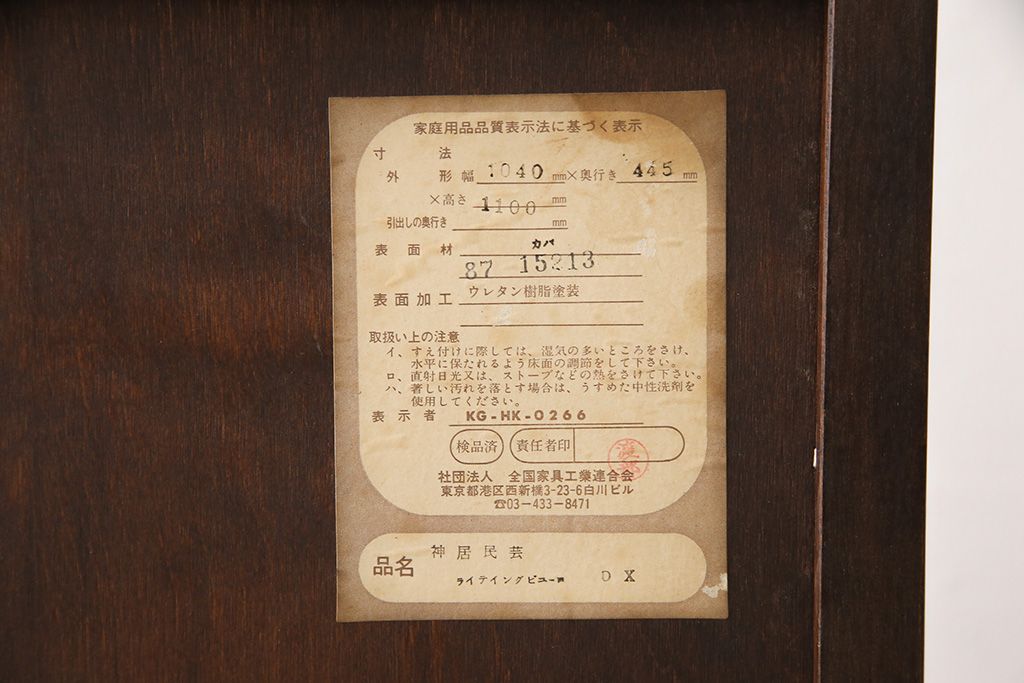 家庭用品品質表示法に基づく表示
寸法
外形 幅 1040 mm×奥行き 445 mm
×高さ 1100 mm
引出しの奥行き mm
表面材 カバ
87 15213
表面加工 ウレタン樹脂塗装
取扱い上の注意
イ、すえ付けに際しては、湿気の多いところをさけ、
水平に保たれるよう床面の調節をして下さい。
ロ、直射日光又は、ストーブなどの熱をさけて下さい。
ハ、著しい汚れを落とす場合は、うすめた中性洗剤を
使用してください。
表示者 KG-HK-0266
検品済 責任者印
社団法人 全国家具工業連合会
東京都港区西新橋3-23-6白川ビル
☎03-433-8471
品名 神居民芸
ライティングビューロ DX